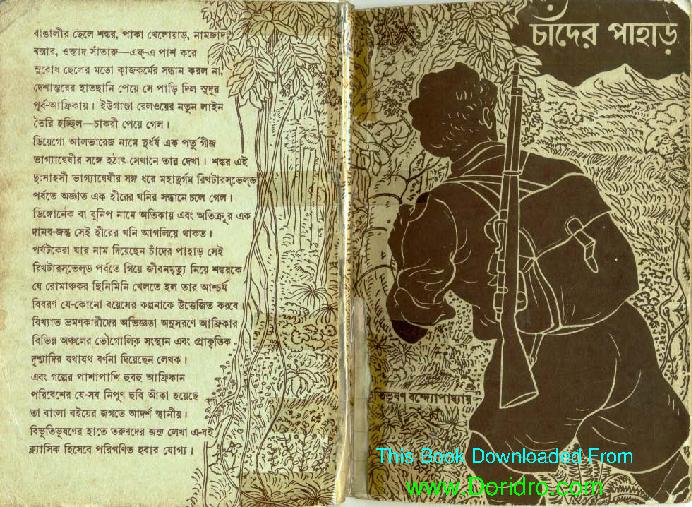 বাঙালীর ছেলে শঙ্কর, পাকা খেলোয়াড়, নামজাদা
বক্সার, ওস্তাদ সাঁতারু—এফ-এ পাশ করে
সুবোধ ছেলের মতো কাজকর্মের সন্ধান করল না,
দেশান্তরের হাতছানি পেয়ে সে পাড়ি দিল সুদূর
পূর্ব-আফ্রিকায়। ইউগাণ্ডা রেলওয়ের নতুন লাইন
তৈরি হচ্ছিল—চাকরী পেয়ে গেল।
ডিয়েগো আলভারেজ নামে দুর্ধর্ষ এক পর্তুগীজ
ভাগ্যান্বেষীর সঙ্গে হঠাৎ সেখানে তার দেখা। শঙ্কর এই
দুঃসাহসী ভাগ্যান্বেষীর সঙ্গ ধরে মহাদুর্গম রিখটারসভেল্ড
পর্বতে অজ্ঞাত এক হীরের খনির সন্ধানে চলে গেল।
ডিঙ্গোনেক বা বুনিপ নামে অতিকায় এবং অতিক্রূর এক
দানব-জন্তু সেই হীরের খনি আগলিয়ে থাকত।
পর্যটকেরা যার নাম দিয়েছেন চাঁদের পাহাড় সেই
রিখটারসভেল্ড পর্বতে গিয়ে জীবনমৃত্যু নিয়ে শঙ্করকে
যে রোমাঞ্চকর ছিনিমিনি খেলতে হল তার আশ্চর্য
বিবরণ যে-কোনো বয়েসের কল্পনাকে উত্তেজিত করবে।
বিখ্যাত ভ্রমণকারীদের অভিজ্ঞতা অনুসরণে আফ্রিকার
বিভিন্ন অঞ্চলের ভৌগোলিক সংস্থান এবং প্রাকৃতিক
দৃশ্যাদির যথাযথ বর্ণনা দিয়েছেন লেখক।
এবং গল্পের পাশাপাশি হুবহু আফ্রিকান
পরিবেশের যে-সব নিপুণ ছবি আঁকা হয়েছে
তা বাংলা বইয়ের জগতে আদর্শ স্থানীয়।
বিভূতিভূষণের হাতে তরুণদের জন্য লেখা এ-বই
ক্ল্যাসিক হিসেবে পরিগণিত হবার যোগ্য।
চাঁদের পাহাড়
তিভূষণ বন্দ্যোপাধ্যায়
This Book Downloaded From
www.Doridro.com